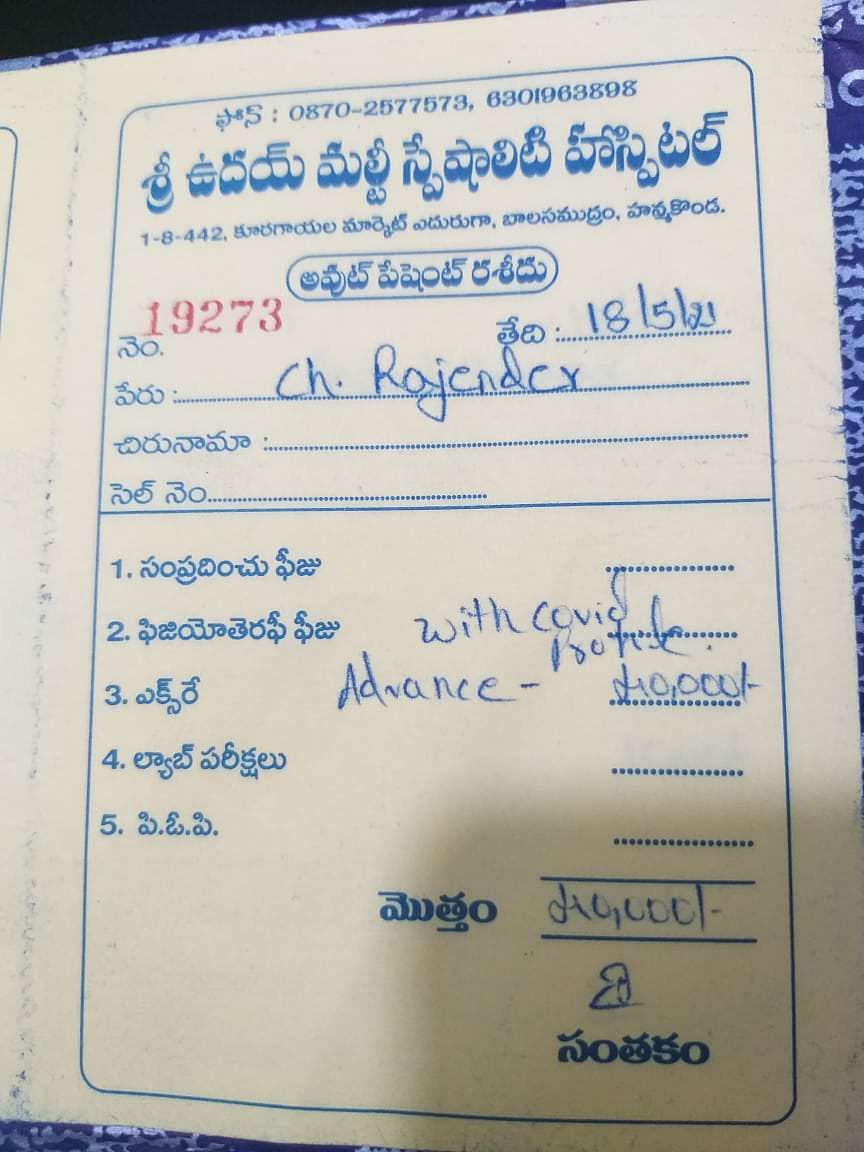 ఫోన్ : 0870-2577573, 6301963898
శ్రీ ఉదయ్ మల్టీ స్పేషాలిటి హాస్పిటల్
1-8-442, కూరగాయల మార్కెట్ ఎదురుగా, బాలసముద్రం, హన్మకొండ.
అవుట్ పేషెంట్ రశీదు
19273
నెం. తేది : 18/5/21
పేరు : Ch. Rajender
చిరునామా :
సెల్ నెం.
1. సంప్రదించు ఫీజు
2. ఫిజియోతెరఫీ ఫీజు with covid
3. ఎక్స్‌రే Advance - 10,000/-
4. ల్యాబ్ పరీక్షలు
5. పి.ఓ.పి.
మొత్తం 10,000/-
సంతకం